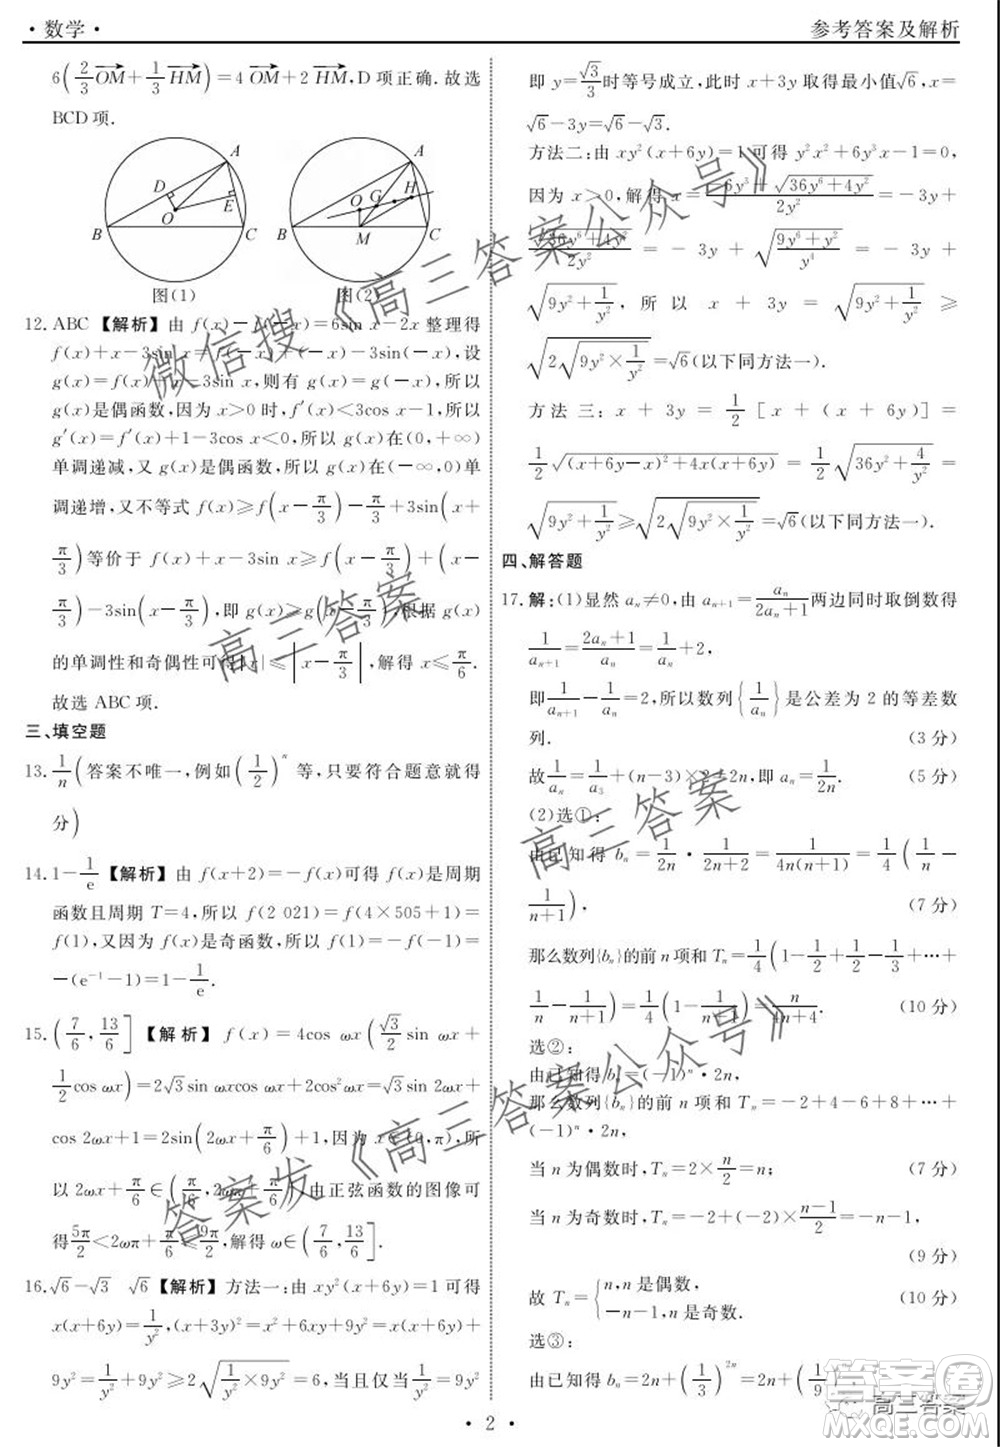 · 数学 ·
参考答案及解析
6(2/3 OM→ + 1/3 HM→) = 4 OM→ + 2 HM→, D 项正确. 故选
BCD 项.
A
D
O
E
B
C
图(1)
A
O
G
H
B
M
C
图(2)
12. ABC 【解析】由 f(x)-f(-x)=6sin x-2x 整理得
f(x)+x-3sin x=f(-x)+(-x)-3sin(-x), 设
g(x)=f(x)+x-3sin x, 则有 g(x)=g(-x), 所以
g(x)是偶函数, 因为 x>0 时, f′(x)<3cos x-1, 所以
g′(x)=f′(x)+1-3cos x<0, 所以 g(x)在(0,+∞)
单调递减, 又 g(x)是偶函数, 所以 g(x)在(-∞,0)单
调递增, 又不等式 f(x)≥f(x-π/3)-π/3+3sin(x+
π/3)等价于 f(x)+x-3sin x≥f(x-π/3)+(x-
π/3)-3sin(x-π/3), 即 g(x)≥g(x-π/3), 根据 g(x)
的单调性和奇偶性可得|x|≤|x-π/3|, 解得 x≤π/6.
故选 ABC 项.
三、填空题
13. 1/n (答案不唯一, 例如(1/2)^n 等, 只要符合题意就得
分)
14. 1-1/e 【解析】由 f(x+2)=-f(x)可得 f(x)是周期
函数且周期 T=4, 所以 f(2 021)=f(4×505+1)=
f(1), 又因为 f(x)是奇函数, 所以 f(1)=-f(-1)=
-(e^-1-1)=1-1/e.
15. (7/6, 13/6] 【解析】f(x)=4cos ωx(√3/2 sin ωx+
1/2 cos ωx)=2√3sin ωxcos ωx+2cos²ωx=√3sin 2ωx+
cos 2ωx+1=2sin(2ωx+π/6)+1, 因为 x∈(0,π), 所
以 2ωx+π/6∈(π/6, 2ωπ+π/6), 由正弦函数的图像可
得 5π/2<2ωπ+π/6≤9π/2, 解得 ω∈(7/6, 13/6].
16. √6-√3 √6 【解析】方法一: 由 xy²(x+6y)=1 可得
x(x+6y)=1/y², (x+3y)²=x²+6xy+9y²=x(x+6y)+
9y²=1/y²+9y²≥2√(1/y²×9y²)=6, 当且仅当 1/y²=9y²,
即 y=√3/3时等号成立, 此时 x+3y 取得最小值√6, x=
√6-3y=√6-√3.
方法二: 由 xy²(x+6y)=1 可得 y²x²+6y³x-1=0,
因为 x>0, 解得 x=(-6y³+√(36y⁶+4y²))/2y²=-3x+
√(36y⁶+4y²)/2y² = -3y+√((9y⁶+y²)/y⁴) = -3y+
√(9y²+1/y²), 所以 x+3y=√(9y²+1/y²)≥
√(2√(9y²×1/y²))=√6(以下同方法一).
方法三: x+3y=1/2[x+(x+6y)]=
1/2√((x+6y-x)²+4x(x+6y))=1/2√(36y²+4/y²)=
√(9y²+1/y²)≥√(2√(9y²×1/y²))=√6(以下同方法一).
四、解答题
17. 解: (1)显然 aₙ≠0, 由 aₙ₊₁=aₙ/(2aₙ+1)两边同时取倒数得
1/aₙ₊₁=(2aₙ+1)/aₙ=1/aₙ+2,
即1/aₙ₊₁-1/aₙ=2, 所以数列{1/aₙ}是公差为 2 的等差数
列. (3 分)
故1/aₙ=1/a₃+(n-3)×2=2n, 即 aₙ=1/2n. (5 分)
(2)选①:
由已知得 bₙ=1/2n·1/(2n+2)=1/4n(n+1)=1/4(1/n-
1/(n+1)), (7 分)
那么数列{bₙ}的前 n 项和 Tₙ=1/4(1-1/2+1/2-1/3+…+
1/n-1/(n+1))=1/4(1-1/(n+1))=n/(4n+4). (10 分)
选②:
由已知得 bₙ=(-1)ⁿ·2n,
那么数列{bₙ}的前 n 项和 Tₙ=-2+4-6+8+…+
(-1)ⁿ·2n,
当 n 为偶数时, Tₙ=2×n/2=n; (7 分)
当 n 为奇数时, Tₙ=-2+(-2)×(n-1)/2=-n-1,
(9 分)
故 Tₙ={n, n 是偶数,
-n-1, n 是奇数. (10 分)
选③:
由已知得 bₙ=2n+(1/3)²ⁿ=2n+(1/9)
· 2 ·
微信搜《高三答案公众号》
高三答案
高三答案
答案发《高三答案公众号》
答案卷
高三答案
MXQE.COM